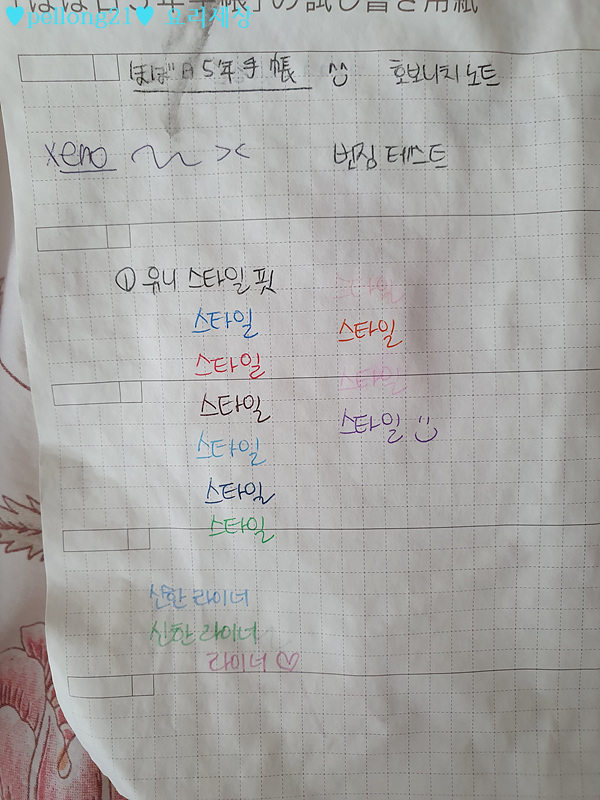 ほぼ日5年手帳」の試し書き用紙
♥pellong21♥ 요리세상
ほぼ日5年手帳 호보니치 노트
xeno 번짐 테스트
① 유니 스타일 핏
스타일 스타일
스타일 스타일
스타일 스타일
스타일 스타일
스타일
스타일
신한 라이너
신한 라이너
라이너 ♡